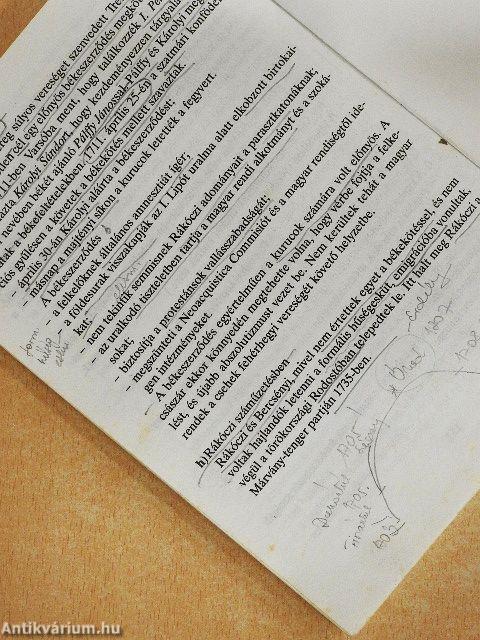 reg súlyos vereséget szenvedett Tre
lencel egy előnyös békeszerződés megkö
11-ben Varsóba ment, hogy találkozzék I. Pé
azta Károlyi Sándort, hogy kezdeményezzen tárgyalá
nevében békét ajánló Pálffy Jánossal. Pálffy és Károlyi meg
tak a békefeltételekben, 1711. április 25-én a szatmári konföde
ciós gyűlésen a követek a békekötés mellett szavaztak.
– április 30-án Károlyi aláírta a békeszerződést;
másnap a majtényi síkon a kurucok letették a fegyvert.
A békeszerződés
– a felkelőknek általános amnesztiát ígér,
– a földesurak visszakapják az I. Lipót uralma alatt elkobzott birtokai-
kat;
– nem tekintik semmisnek Rákóczi adományait a parasztkatonáknak,
az uralkodó tiszteletben tartja a magyar rendi alkotmányt és a szoká-
sokat;
– biztosítja a protestánsok vallásszabadságát;
– megszünteti a Neoacquistica Commisiót és a magyar rendiségtől ide-
gen intézményeket.
A békeszerződés egyértelműen a kurucok számára volt előnyös. A
császár ekkor könnyedén megtehette volna, hogy vérbe fojtja a felke-
lést, és újabb abszolutizmust vezet be. Nem kerültek tehát a magyar
rendek a csehek fehérhegyi vereségét követő helyzetbe.
h) Rákóczi száműzetésben
Rákóczi és Bercsényi, mivel nem értettek egyet a békekötéssel, és nem
voltak hajlandók letenni a formális hűségesküt, emigrációba vonultak,
végül a törökországi Rodostóban telepedtek le. Itt halt meg Rákóczi a
Márvány-tenger partján 1735-ben.
Erdély
1702
1708
Dunántúl 1705
1705.
Antikvárium.hu